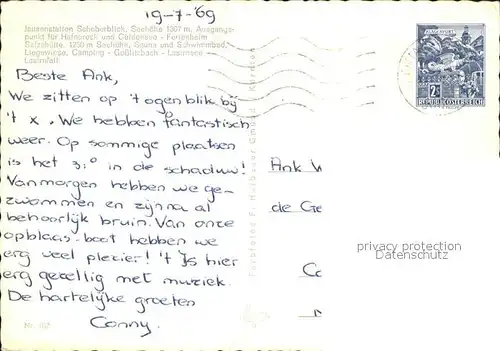 19-7-'69
Jausenstation Schaberblick, Seehöhe 1307 m, Ausgangs-
punkt für Hahnreich und Dürrenstein - Ferienheim
Seehöhe, Sauna und Schwimmbad,
Liegewiese, Camping
Beste Ank,
We zitten op 't ogenblik bij
't x. We hebben fantastisch
weer. Op sommige plaatsen
is het 31° in de schaduw!
Vanmorgen hebben we ge-
zwommen en zijn al
behoorlijk bruin. Van onze
opblaas-boot hebben we
erg veel plezier! 't Is hier
erg gezellig met muziek.
De hartelijke groeten
Conny.
Ank W
de Ge
KLAGENFURT
2S
REPUBLIK ÖSTERREICH
privacy protection
Datenschutz